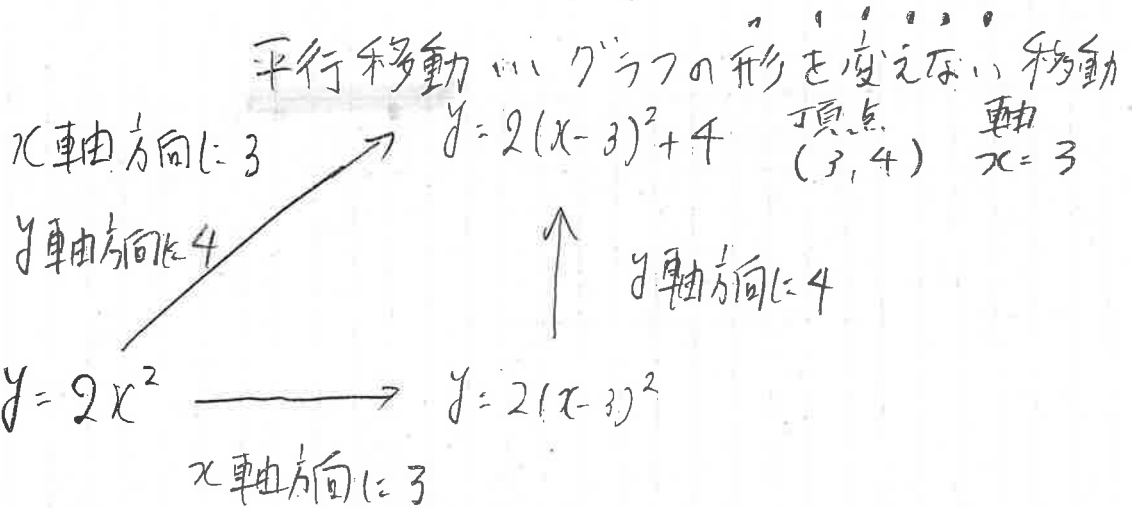 平行移動 … グラフの形を変えない移動
x軸方向に3
y=2(x-3)²+4
頂点
(3,4)
軸
x=3
y軸方向に4
y軸方向に4
y=2x²
y=2(x-3)²
x軸方向に3